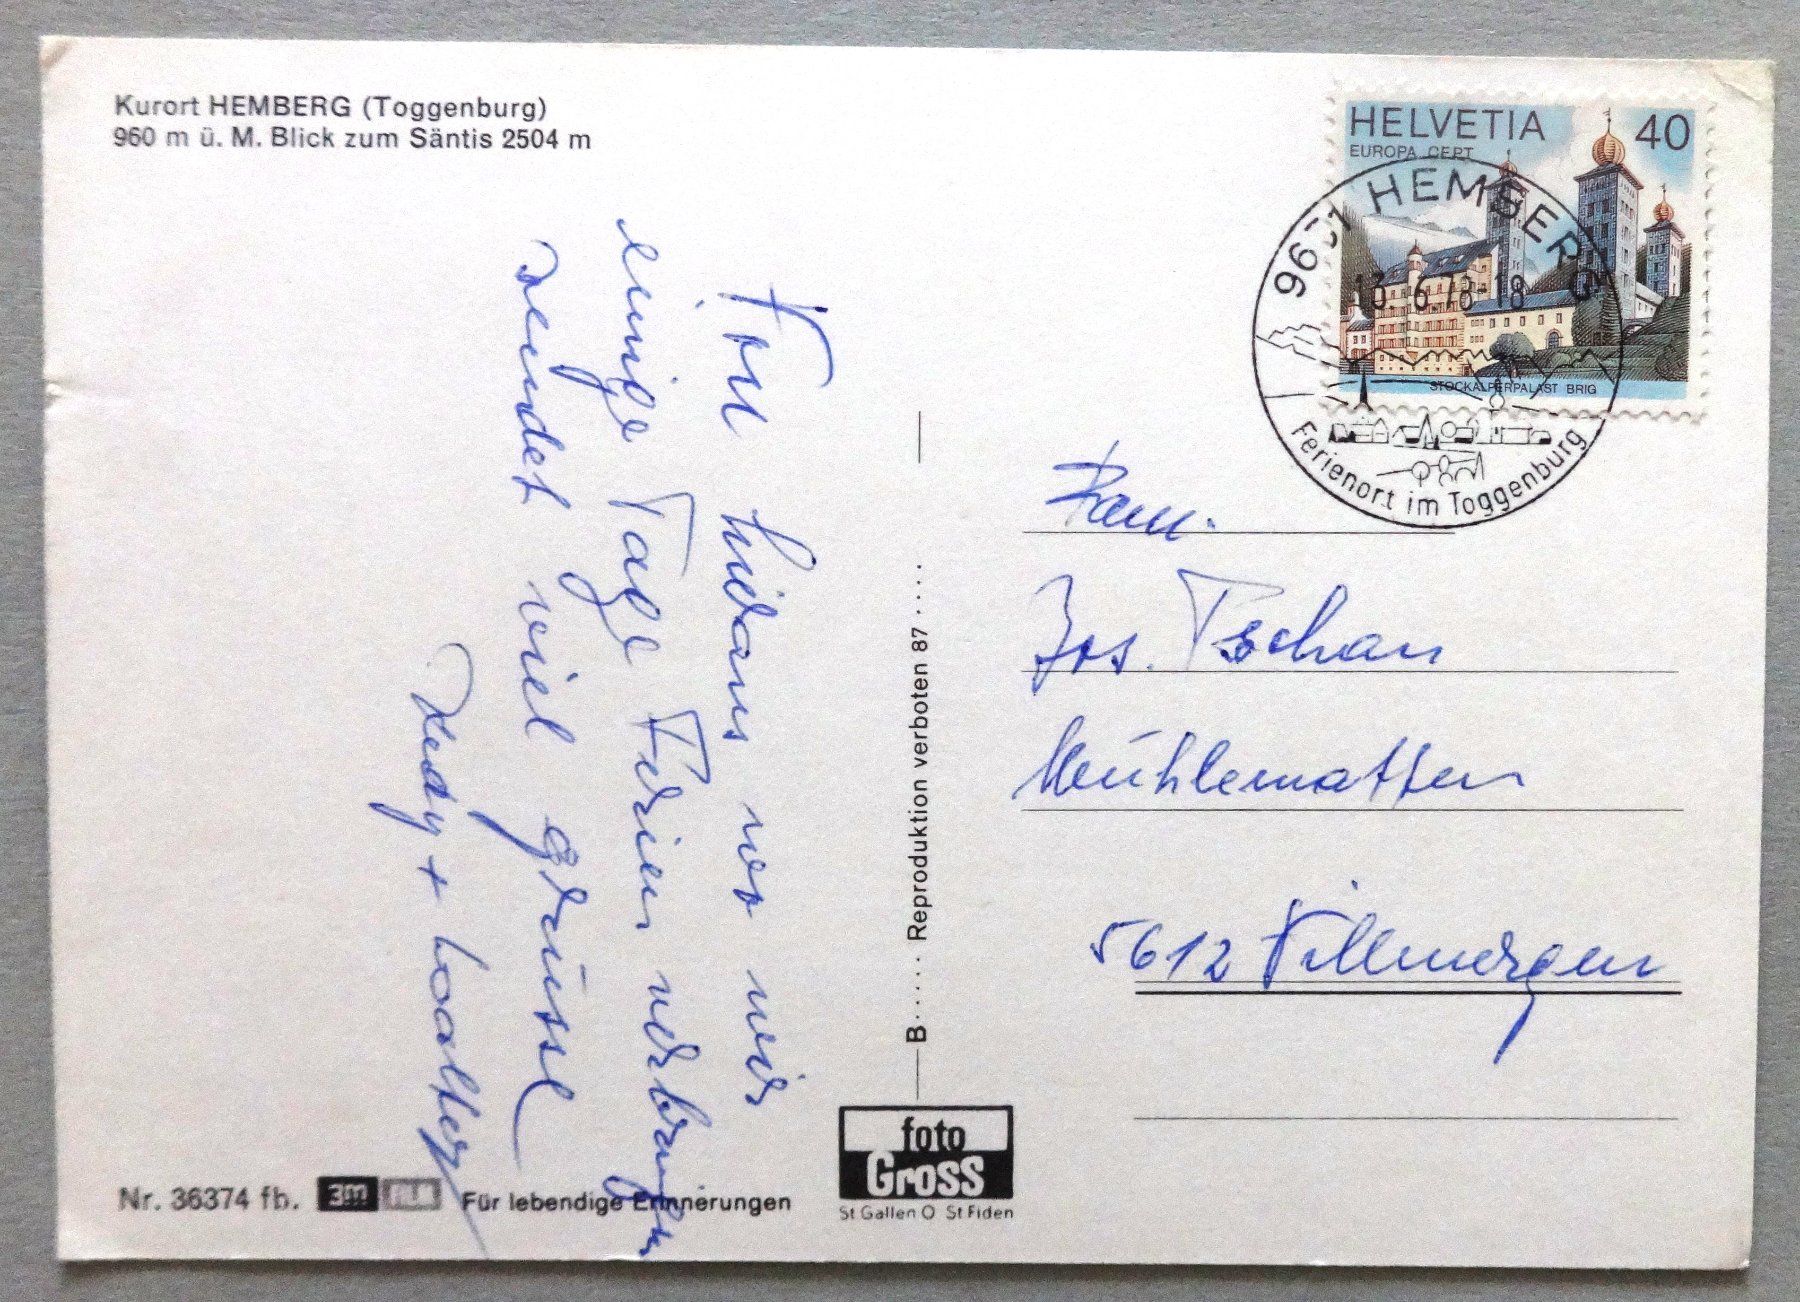 Kurort HEMBERG (Toggenburg)
960 m ü. M. Blick zum Säntis 2504 m
Von hieraus wo wir
einige Tage Ferien verbringen
sendet viel grüsse
Hedy + Walter
Nr. 36374 fb.
3M
Für lebendige Erinnerungen
B..... Reproduktion verboten 87 .....
foto
Gross
St Gallen O St Fiden
HELVETIA 40
EUROPA CEPT
STOCKALPERPALAST BRIG
HEMBERG
13.6.78-18
Ferienort im Toggenburg
Fam.
Jos. Tschan
Mühlematten
5612 Villmergen